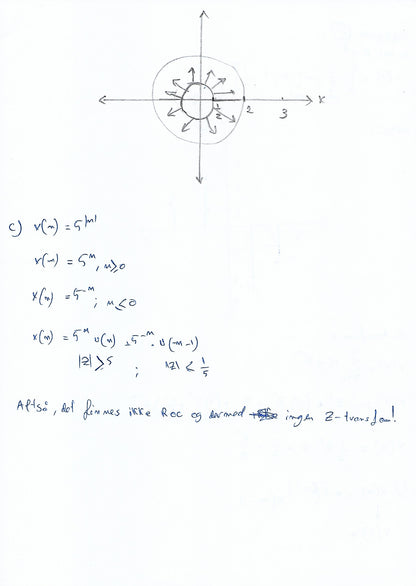 x
1/2 2 3
c) x(n) = 5^|n|
x(n) = 5^n, n≥0
x(n) = 5^-n ; n≤0
x(n) = 5^n u(n) + 5^-n · u(-n-1)
|z| > 5 ; |z| < 1/5
Altså, det finnes ikke Roc og dermed ingen Z-transform!